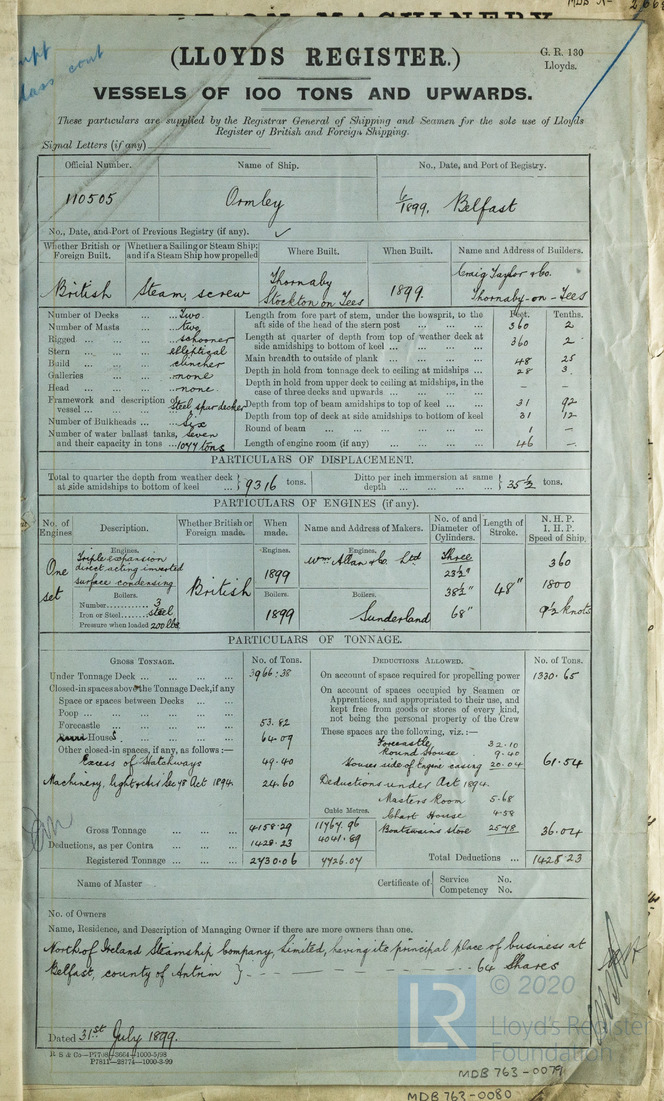 (LLOYDS REGISTER.)
G. R. 130
Lloyds.
VESSELS OF 100 TONS AND UPWARDS.
These particulars are supplied by the Registrar General of Shipping and Seamen for the sole use of Lloyds
Register of British and Foreign Shipping.
Signal Letters (if any)
Official Number. Name of Ship. No., Date, and Port of Registry.
110505 Ormley 6/1899. Belfast
No., Date, and Port of Previous Registry (if any).
Whether British or Foreign Built. Whether a Sailing or Steam Ship; and if a Steam Ship how propelled Where Built. When Built. Name and Address of Builders.
British Steam, screw Thornaby Stockton on Tees 1899. Craig Taylor & Co. Thornaby-on-Tees
Number of Decks ... Two
Number of Masts ... two
Rigged ... schooner
Stern ... elliptical
Build ... clincher
Galleries ... none
Head ... none
Framework and description of vessel ... Steel, spar decker
Number of Bulkheads ... Six
Number of water ballast tanks, seven
and their capacity in tons ... 1044 tons
Feet. Tenths.
Length from fore part of stem, under the bowsprit, to the aft side of the head of the stern post ... 360 2
Length at quarter of depth from top of weather deck at side amidships to bottom of keel ... 360 2
Main breadth to outside of plank ... 48 25
Depth in hold from tonnage deck to ceiling at midships ... 28 3
Depth in hold from upper deck to ceiling at midships, in the case of three decks and upwards ... – –
Depth from top of beam amidships to top of keel ... 31 92
Depth from top of deck at side amidships to bottom of keel 31 12
Round of beam ... 1 –
Length of engine room (if any) ... 46 –
PARTICULARS OF DISPLACEMENT.
Total to quarter the depth from weather deck at side amidships to bottom of keel ... 9316 tons. Ditto per inch immersion at same depth ... 35½ tons.
PARTICULARS OF ENGINES (if any).
No. of Engines Description. Whether British or Foreign made. When made. Name and Address of Makers. No. of and Diameter of Cylinders. Length of Stroke. N. H. P. I. H. P. Speed of Ship.
One set
Engines. Triple expansion direct acting inverted surface condensing
Boilers.
Number 3
Iron or Steel steel
Pressure when loaded 200 lbs
British
Engines. 1899
Boilers. 1899
Engines. Wm Allan & Co. Ltd
Boilers. Sunderland
Three 23½" 38½" 68"
48"
360
1800
9½ knots
PARTICULARS OF TONNAGE.
GROSS TONNAGE. No. of Tons.
Under Tonnage Deck ... 3966.38
Closed-in spaces above the Tonnage Deck, if any
Space or spaces between Decks ...
Poop ...
Forecastle ... 53.82
Houses ... 64.09
Other closed-in spaces, if any, as follows:—
Excess of Hatchways 49.40
Machinery, light & air Sec 78 Act 1894. 24.60
Cubic Metres.
Gross Tonnage ... 4158.29 11767.96
Deductions, as per Contra ... 1428.23 4041.89
Registered Tonnage ... 2730.06 7726.07
DEDUCTIONS ALLOWED. No. of Tons.
On account of space required for propelling power 1330.65
On account of spaces occupied by Seamen or Apprentices, and appropriated to their use, and kept free from goods or stores of every kind, not being the personal property of the Crew
These spaces are the following, viz.:—
Forecastle 32.10
Round House 9.40
Houses side of Engine casing 20.04 61.54
Deductions under Act 1894
Masters Room 5.68
Chart House 4.58
Boatswains store 25.78 36.04
Total Deductions ... 1428.23
Name of Master Certificate of Service No. Competency No.
No. of Owners
Name, Residence, and Description of Managing Owner if there are more owners than one.
North of Ireland Steamship Company, Limited, having its principal place of business at
Belfast, county of Antrim } 64 Shares
Dated 31st July 1899.
LR © 2020
Lloyd's Register
Foundation
MDB 763-0079
MDB 763-0080